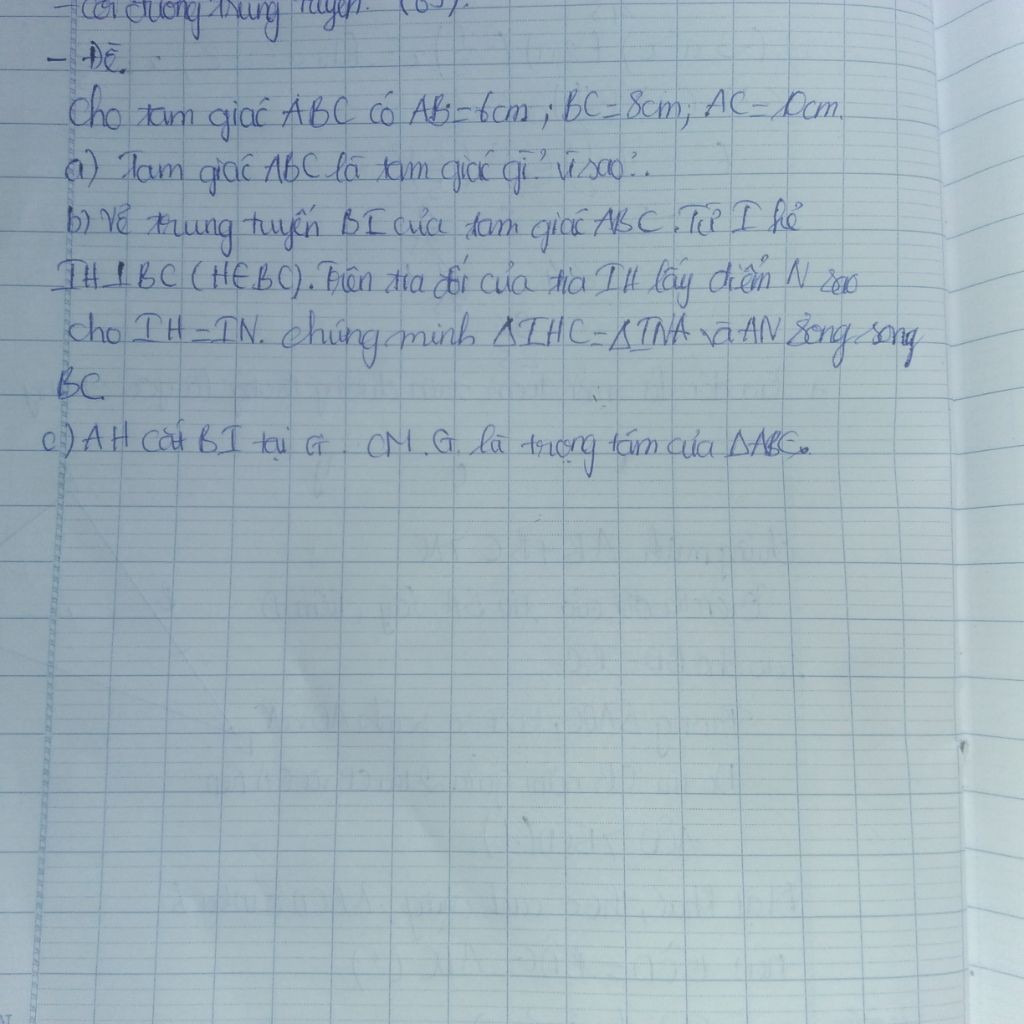 - Cới đường trung tuyến. (G5).
- Đề.
Cho tam giác ABC có AB=6cm; BC=8cm; AC=10cm.
a) Tam giác ABC là tam giác gì? Vì sao?.
b) Vẽ trung tuyến BI của tam giác ABC. Từ I kẻ
IH⊥BC (H∈BC). Trên tia đối của tia IH lấy điểm N sao
cho IH=IN. Chứng minh ΔIHC=ΔINA và AN song song
BC.
c) AH cắt BI tại G. CM. G. là trọng tâm của ΔABC.